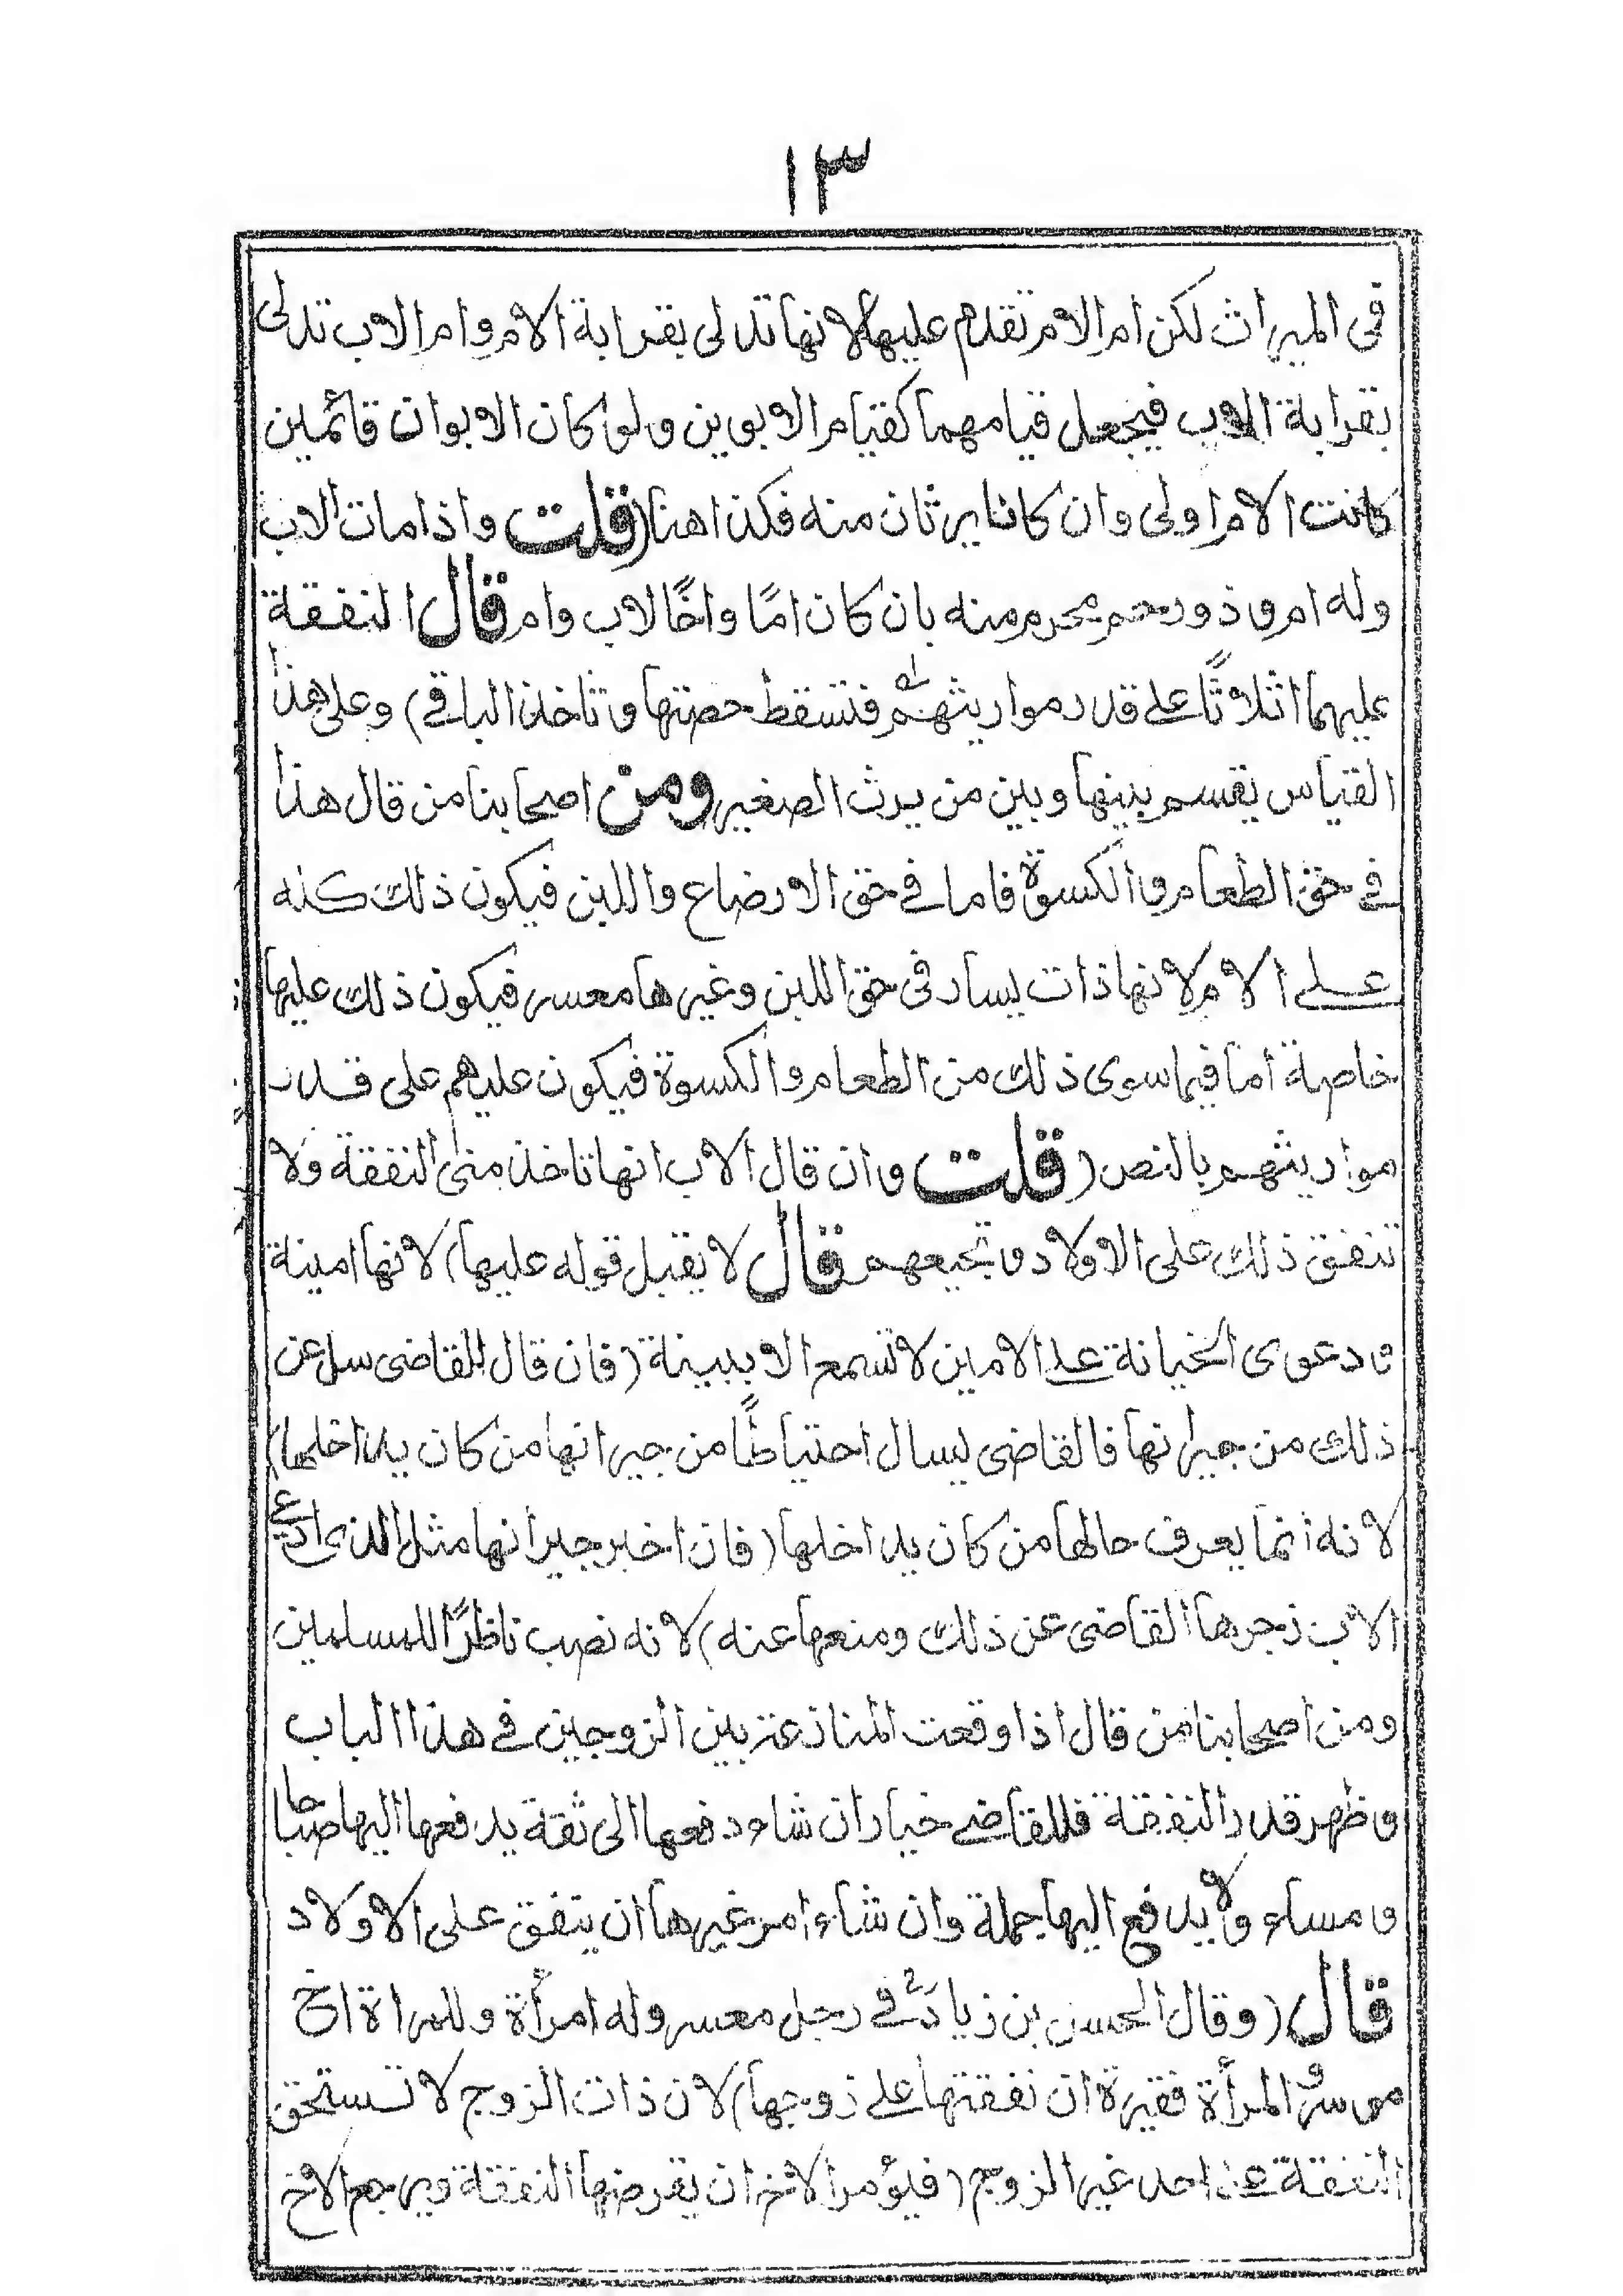 ١٣
فى الميراث لكن ام الام تقدم عليها لانها تدلى بقرابة الام وام الاب تدلى
بقرابة الاب فيجعل قيامهما كقيام الابوين ولو كان الابوان قائمين
كانت الام اولى وان كانا يرثان منه فكذا هنا (قلت واذا مات الاب
وله ام وذو رحم محرم منه بان كان امًا واخًا لاب وام قال النفقة
عليهما اثلاثًا على قدر مواريثهم فتسقط حصتها وتاخذ الباقى) وعلى هذا
القياس يقسم بينها وبين من يرث الصغير ومن اصحابنا من قال هذا
فى حق الطعام والكسوة فاما فى حق الارضاع واللبن فيكون ذلك كله
على الام لانها ذات يسار فى حق اللبن وغيرها معسر فيكون ذلك عليها
خاصة اما فيما سوى ذلك من الطعام والكسوة فيكون عليهم على قدر
مواريثهم بالنص (قلت وان قال الاب انها تاخذ منى النفقة ولا
تنفق ذلك على الاولاد وتجيعهم قال لا يقبل قوله عليها) لانها امينة
ودعوى الخيانة على الامين لا تسمع الا ببينة (فان قال للقاضى سل عن
ذلك من جيرانها فالقاضى يسال احتياطًا من جيرانها من كان يداخلها)
لانه انما يعرف حالها من كان يداخلها (فان اخبر جيرانها مثل الذى ادعى
الاب زجرها القاضى عن ذلك ومنعها عنه) لانه نصب ناظرًا للمسلمين
ومن اصحابنا من قال اذا وقعت المنازعة بين الزوجين فى هذا الباب
وظهر قدر النفقة فللقاضى خيار ان شاء دفعها الى ثقة يدفعها اليها صباحا
ومساء ولا يدفع اليها جملة وان شاء امر غيرها ان ينفق على الاولاد
قال (وقال الحسن بن زياد فى رجل معسر وله امرأة وللمراة اخ
موسر والمرأة فقيرة ان نفقتها على زوجها) لان ذات الزوج لا تستحق
النفقة على احد غير الزوج (فيؤمر الاخ ان يقرضها النفقة ويرجع الاخ